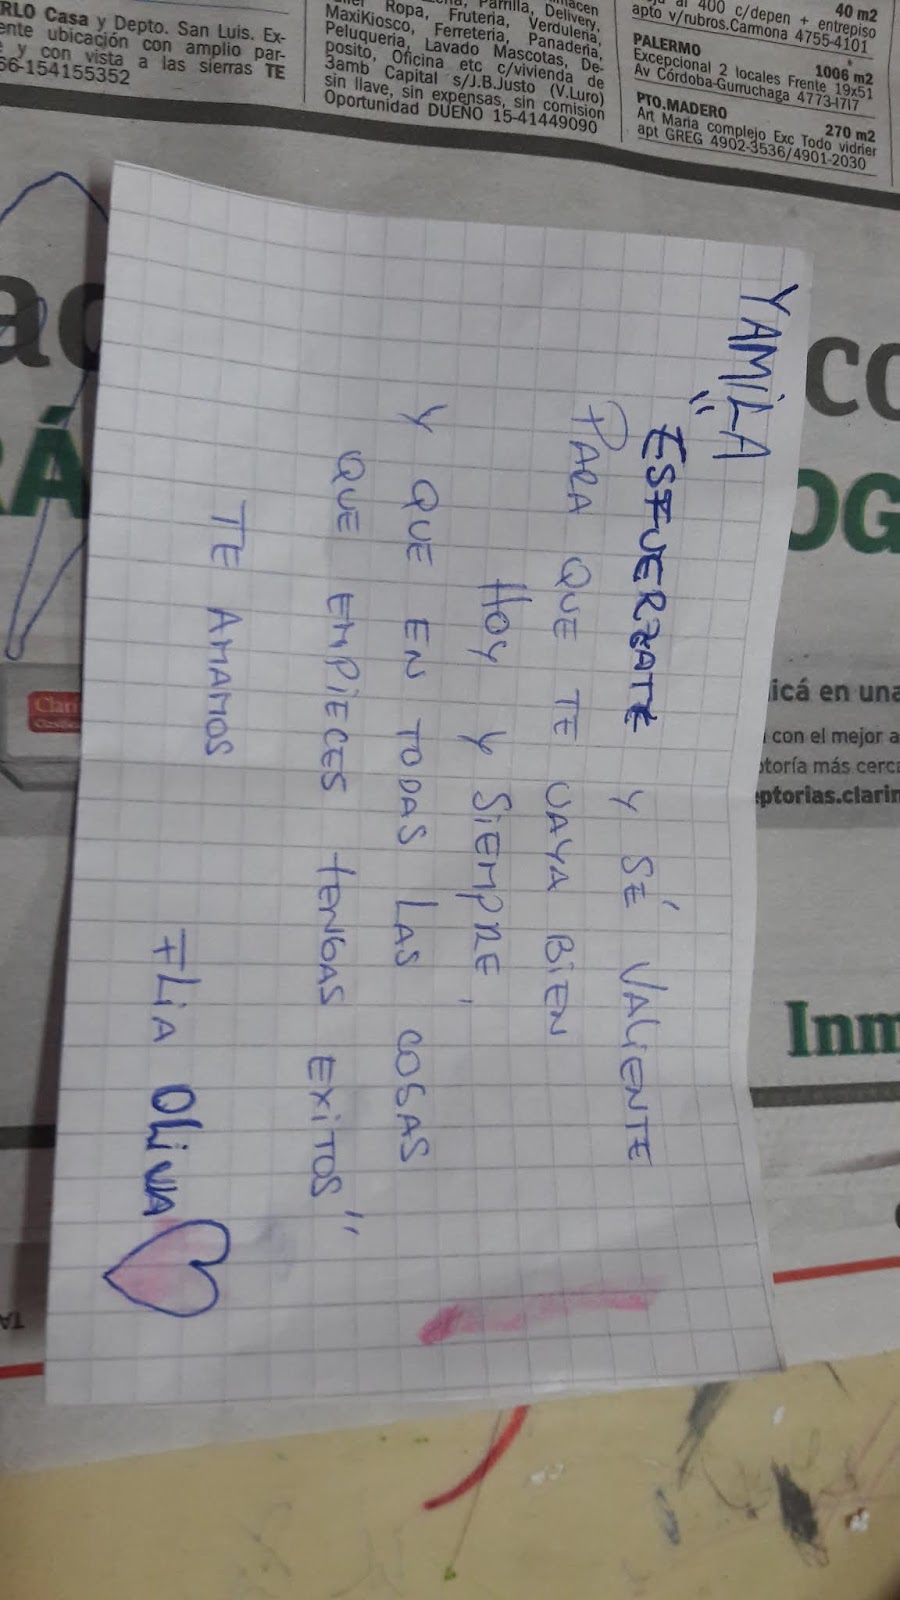 RLO Casa y Depto. San Luis. Ex-
ente ubicación con amplio par-
y con vista a las sierras TE
66-154155352
Parrilla, Delivery,
Ropa, Fruteria, Verduleria,
MaxiKiosco, Ferreteria, Panaderia,
Peluqueria, Lavado Mascotas, De-
posito, Oficina etc c/vivienda de
3amb Capital s/J.B.Justo (V.Luro)
sin llave, sin expensas, sin comision
Oportunidad DUEÑO 15-41449090
40 m2
al 400 c/depen + entrepiso
apto v/rubros.Carmona 4755-4101
PALERMO 1006 m2
Excepcional 2 locales Frente 19x51
Av Córdoba-Gurruchaga 4773-1717
PTO.MADERO 270 m2
Art Maria complejo Exc Todo vidrier
apt GREG 4902-3536/4901-2030
YAMILA
"ESFUERZATE Y SÉ VALIENTE
PARA QUE TE VAYA BIEN
HOY Y SIEMPRE,
Y QUE EN TODAS LAS COSAS
QUE EMPIECES TENGAS EXITOS"
TE AMAMOS
FLIA OLIVA
ac
CO
RÁ
OG
Clari
icá en una
con el mejor a
ptoría más cerca
eptorias.clarin
Inm